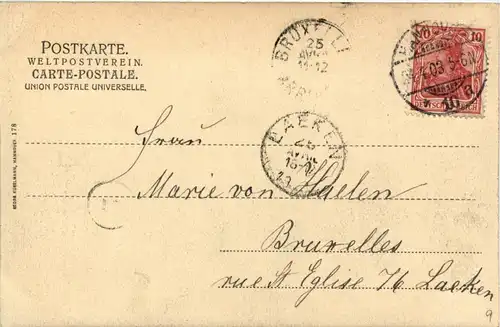 POSTKARTE.
WELTPOSTVEREIN.
CARTE-POSTALE.
UNION POSTALE UNIVERSELLE.
BRUXELLE
25
LAEKEN
25
AVRIL
10
10
HANNOVER
Frau
Marie von Haelen
Bruxelles
rue St Eglise 76 Laeken
9